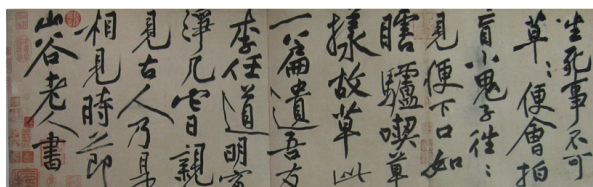 生死事不可
草〻便會拍
盲小鬼子往〻
見便下口如
瞎驢喫草
樣故草此
一篇遺吾友
李任道明窗
淨几它日親
見古人乃是
相見時節
山谷老人書